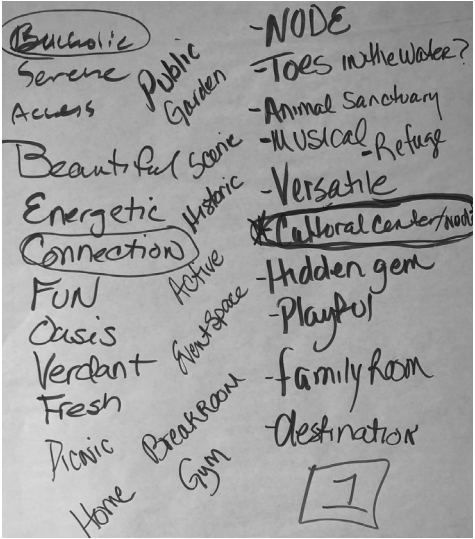 Bucholic
Serene
Access
Beautiful
Energetic
Connection
FUN
Oasis
Verdant
Fresh
Picnic
Home
Public
Garden
Scenic
Historic
Active
Event Space
BreakRoom
Gym
-NODE
-Toes in the water?
-Animal Sanctuary
-Musical
-Refuge
-Versatile
*Cultoral Center/Node
-Hidden gem
-Playful
-family Room
-destination
1